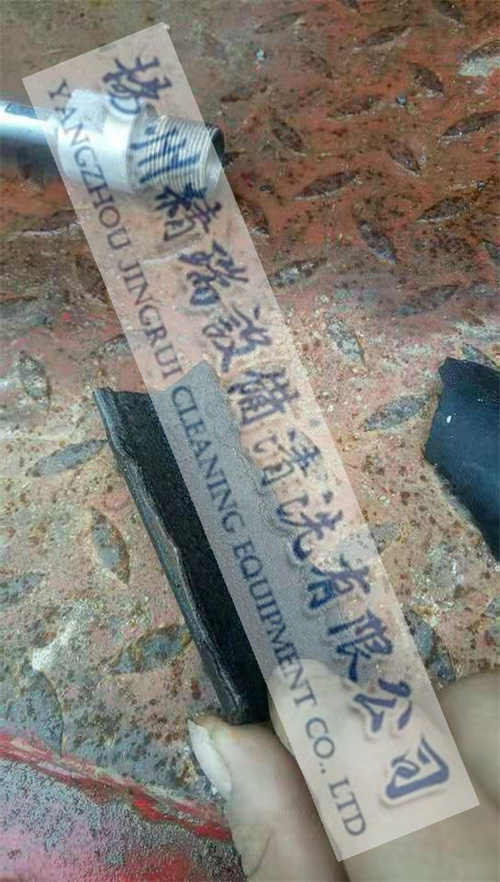 揚州精瑞設備清洗有限公司
YANGZHOU JINGRUI CLEANING EQUIPMENT CO., LTD